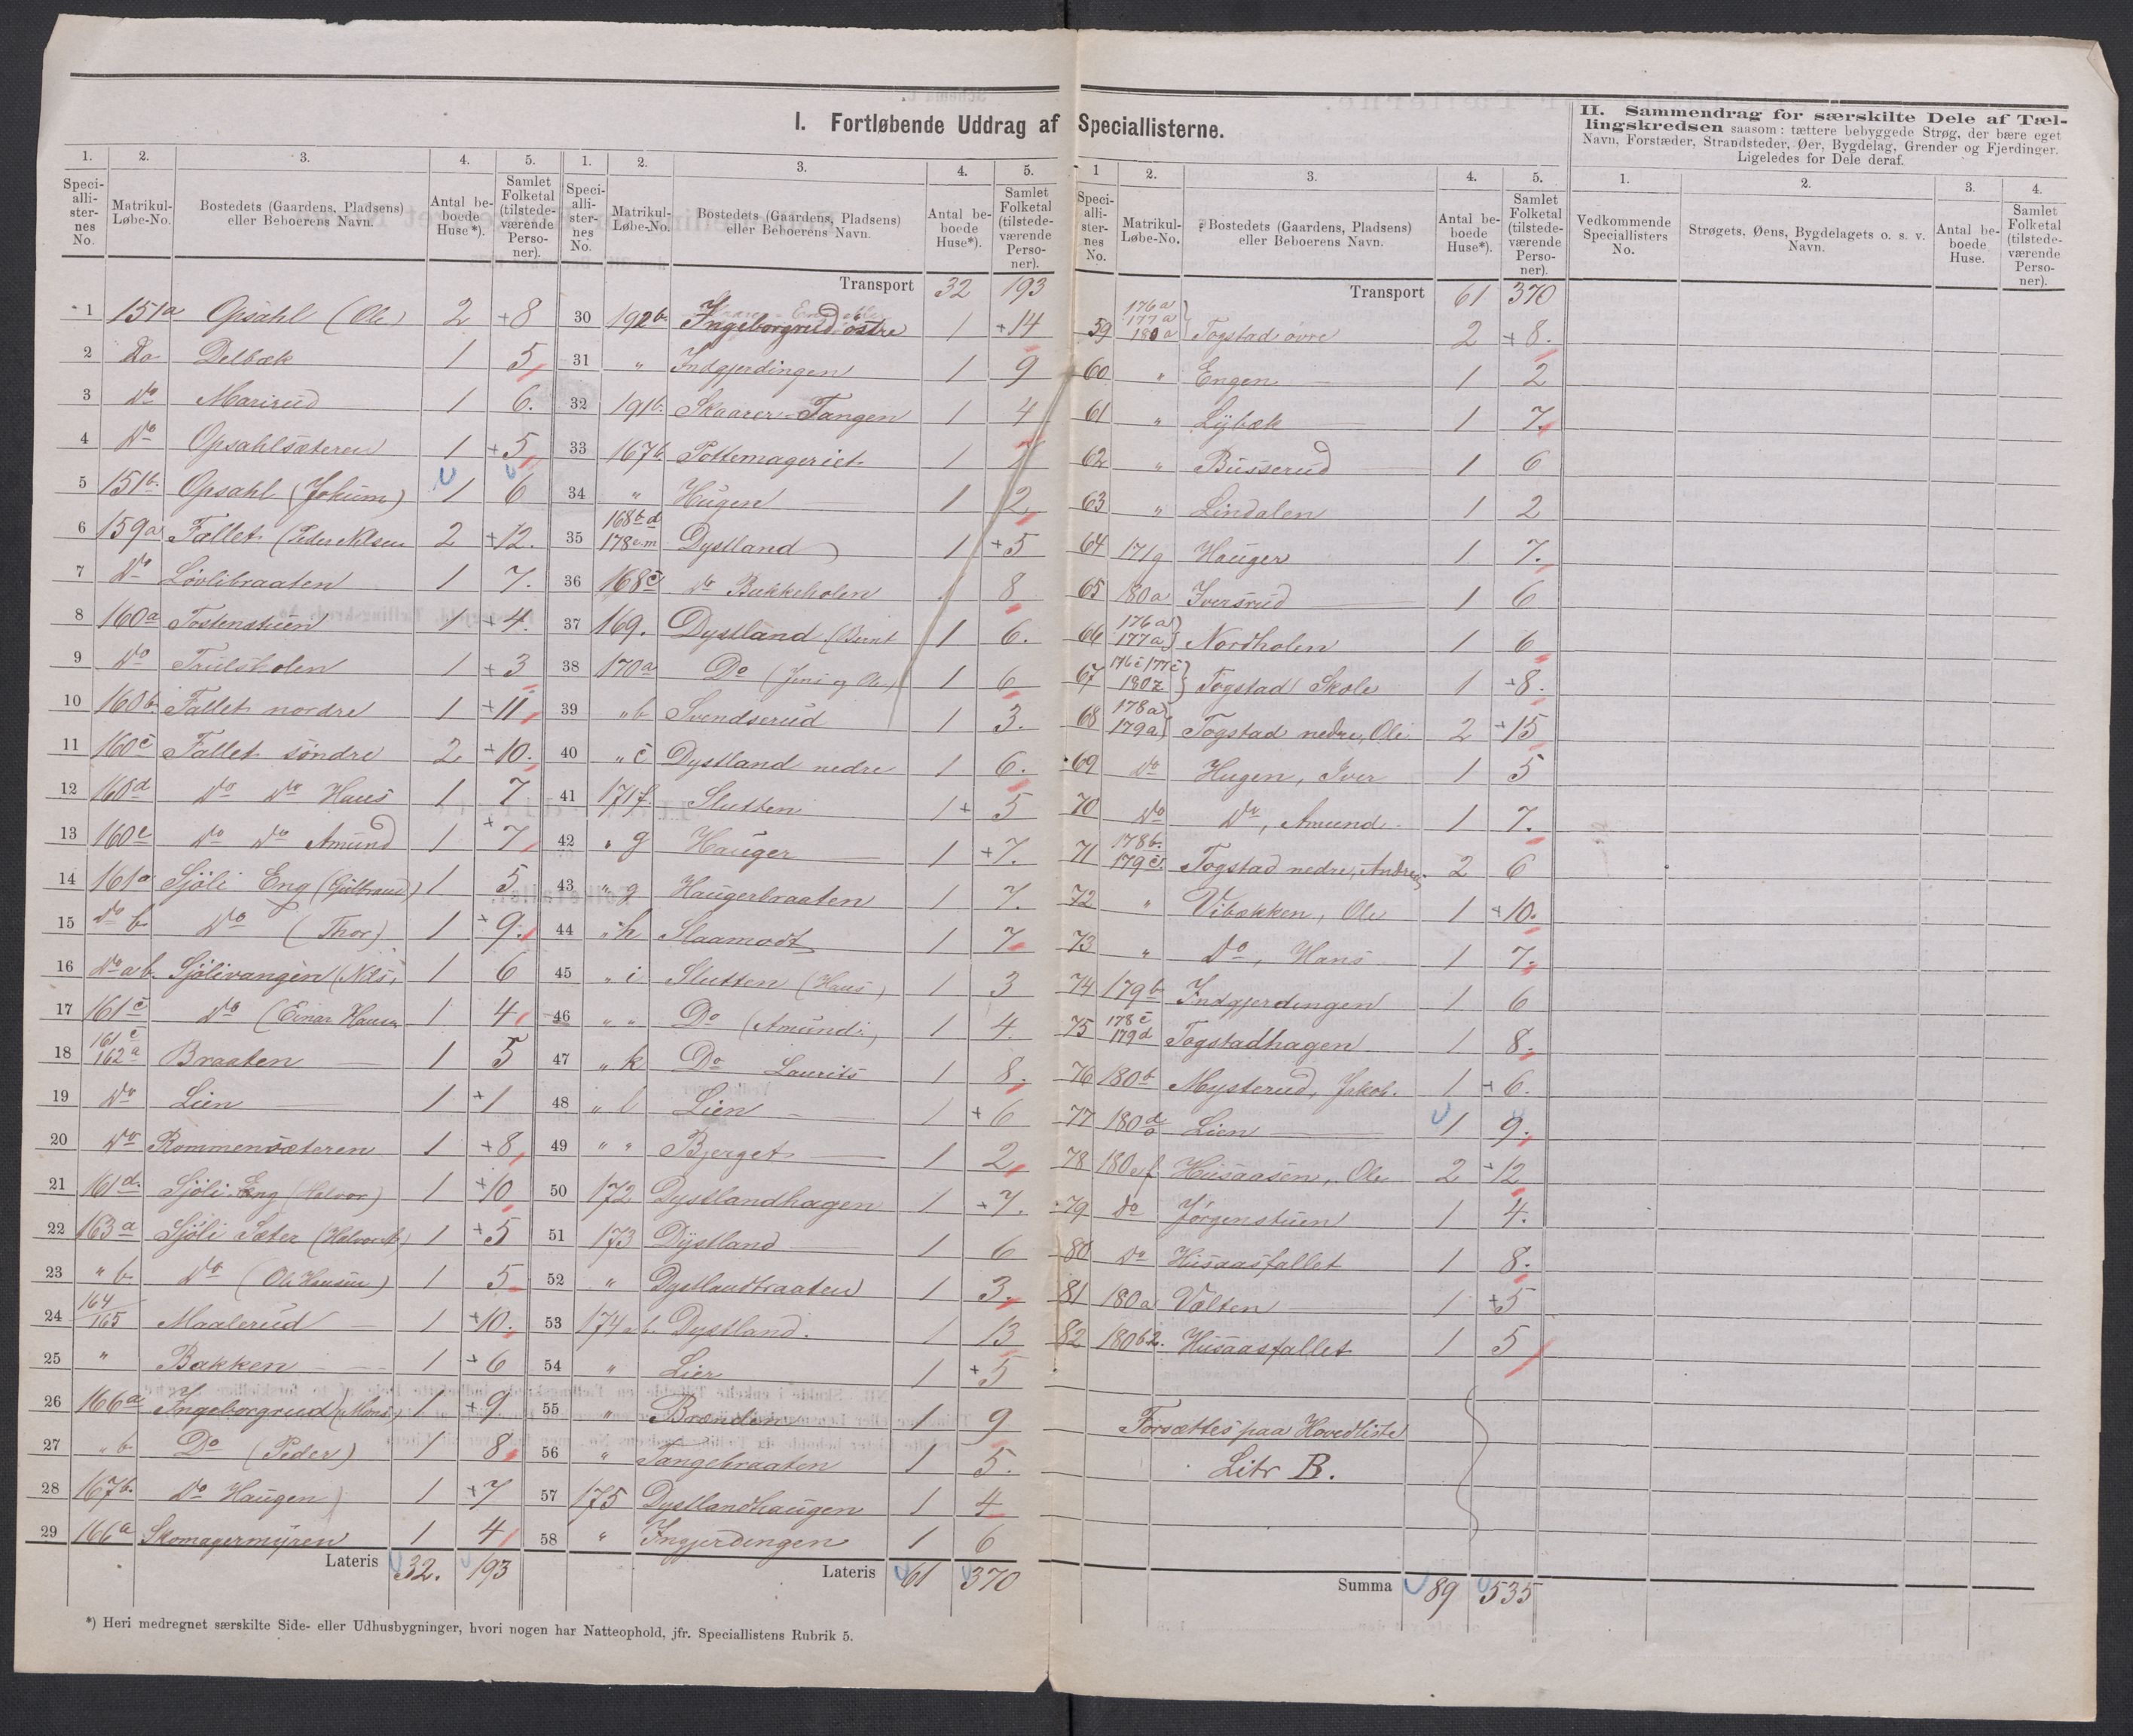 I. Fortløbende Uddrag af Speciallisterne.
1. 2. 3. 4. 5.
Speciallisternes No. Matrikul-Løbe-No. Bostedets (Gaardens, Pladsens) eller Beboerens Navn. Antal beboede Huse*). Samlet Folketal (tilstedeværende Personer).
1 151a Opsahl (Ole) 2 +8
2 Do Delbæk 1 5
3 Do Marirud 1 6.
4 Do Opsahlsæteren 1 +5
5 151b. Opsahl (Jokum) 1 6
6 159a Fallet (Peder Nilsen 2 +12.
7 Do Lövlibraaten 1 7.
8 160a Tostenstuen 1 +4.
9 Do Trulsholen 1 +3
10 160b. Fallet nordre 1 +11
11 160c Fallet söndre 2 +10.
12 160d Do Do Hans 1 7
13 160e Do Do Amund 1 +7
14 161a Sjöli Eng (Gulbrand) 1 5
15 Do b Do (Thor) 1 +9.
16 Do a b. Sjölivangen (Nils, 1 6
17 161c Do (Einar Hansen 1 4
18 161c 162a Braaten 1 5
19 Do Lien 1 +1
20 Do Rommensæteren 1 +8
21 161d. Sjöli Eng (Halvor) 1 +10
22 163a Sjöli Sæter 1 +5
23 " b Do (Ole Hansen) 1 5
24 164/165 Maalerud 1 +10.
25 " Bakken 1 +6
26 166a Ingeborgrud (Mons) 1 +9
27 " b Do (Peder) 1 8
28 167b. Do Haugen 1 +7
29 166a Skomagermyren 1 4
Lateris 32. 193
*) Heri medregnet særskilte Side- eller Udhusbygninger, hvori nogen har Natteophold, jfr. Speciallistens Rubrik 5.
1. 2. 3. 4. 5.
Speciallisternes No. Matrikul-Løbe-No. Bostedets (Gaardens, Pladsens) eller Beboerens Navn. Antal beboede Huse*). Samlet Folketal (tilstedeværende Personer).
Transport 32 193
30 192b. Ingeborgrud östre 1 +14
31 " Indgjerdingen 1 9
32 191b. Skaarer-Tangen 1 4
33 167b. Pottemageriet 1
34 " Hugen 1 2
35 168b d 178 Dystland 1 +5
36 168c do Bakkeholen 1 8
37 169. Dystland (Bernt 1 6.
38 170a Do 1 6
39 " b Svendserud 1 3.
40 " c Dystland nedre 1 6.
41 171f. Slutten 1 + 5
42 " g Hauger 1 +7.
43 " g Haugerbraaten 1 7.
44 " h Slaamodt 1 7
45 " i Slutten (Hans) 1 3
46 " " Do (Amund 1 4.
47 " k Do Laurits 1 8.
48 " l Lien 1 +6
49 " " Bjerget 1 2
50 172 Dystlandhagen 1 +7.
51 173 Dystland 1 6
52 " Dystlandbraaten 1 3.
53 174 a b. Dystland. 1 13
54 " Lier 1 +5
55 " Brænden 1 9
56 " Tangebraaten 1 5.
57 175 Dystlandhaugen 1 4
58 " Ingjerdingen 1 6
Lateris 61 370
1 2. 3. 4. 5.
Speciallisternes No. Matrikul-Løbe-No. Bostedets (Gaardens, Pladsens) eller Beboerens Navn. Antal beboede Huse*). Samlet Folketal (tilstedeværende Personer).
Transport 61 370
59 176a 177a 180a Togstad övre 2 +8.
60 " Engen 1 2
61 " Lybæk 1 7.
62 " Busserud 1 6
63 " Lindalen 1 2
64 171g Hauger 1 7.
65 180a Iversrud 1 6
66 176a 177a Nordholen 1 6
67 176c 177c 180z Togstad Skole 1 +8.
68 178a 179a Togstad nedre, Ole 2 +15
69 Do Hugen, Iver 1 5
70 Do Do, Amund 1 7.
71 178b. 179c. Togstad nedre, Andreas 2 6
72 " Vibækken, Ole 1 +10.
73 " Do, Hans 1 7.
74 179b Indgjerdingen 1 6
75 178c 179d Togstadhagen 1 8.
76 180b Mysterud, Jakob. 1 +6.
77 180d Lien 1 9.
78 180e,f. Husaasen, Ole 2 +12
79 Do Jörgenstuen 1 4.
80 Do Husaasfallet 1 8.
81 180a Volten 1 +5
82 180b2. Husaasfallet 1 5
Forsættes paa Hovedliste
Litr B.
Summa 89 535
II. Sammendrag for særskilte Dele af Tællingskredsen saasom: tættere bebyggede Strøg, der bære eget Navn, Forstæder, Strandsteder, Øer, Bygdelag, Grender og Fjerdinger. Ligeledes for Dele deraf.
1. 2. 3. 4.
Vedkommende Speciallisters No. Strøgets, Øens, Bygdelagets o. s. v. Navn. Antal beboede Huse. Samlet Folketal (tilstedeværende Personer).